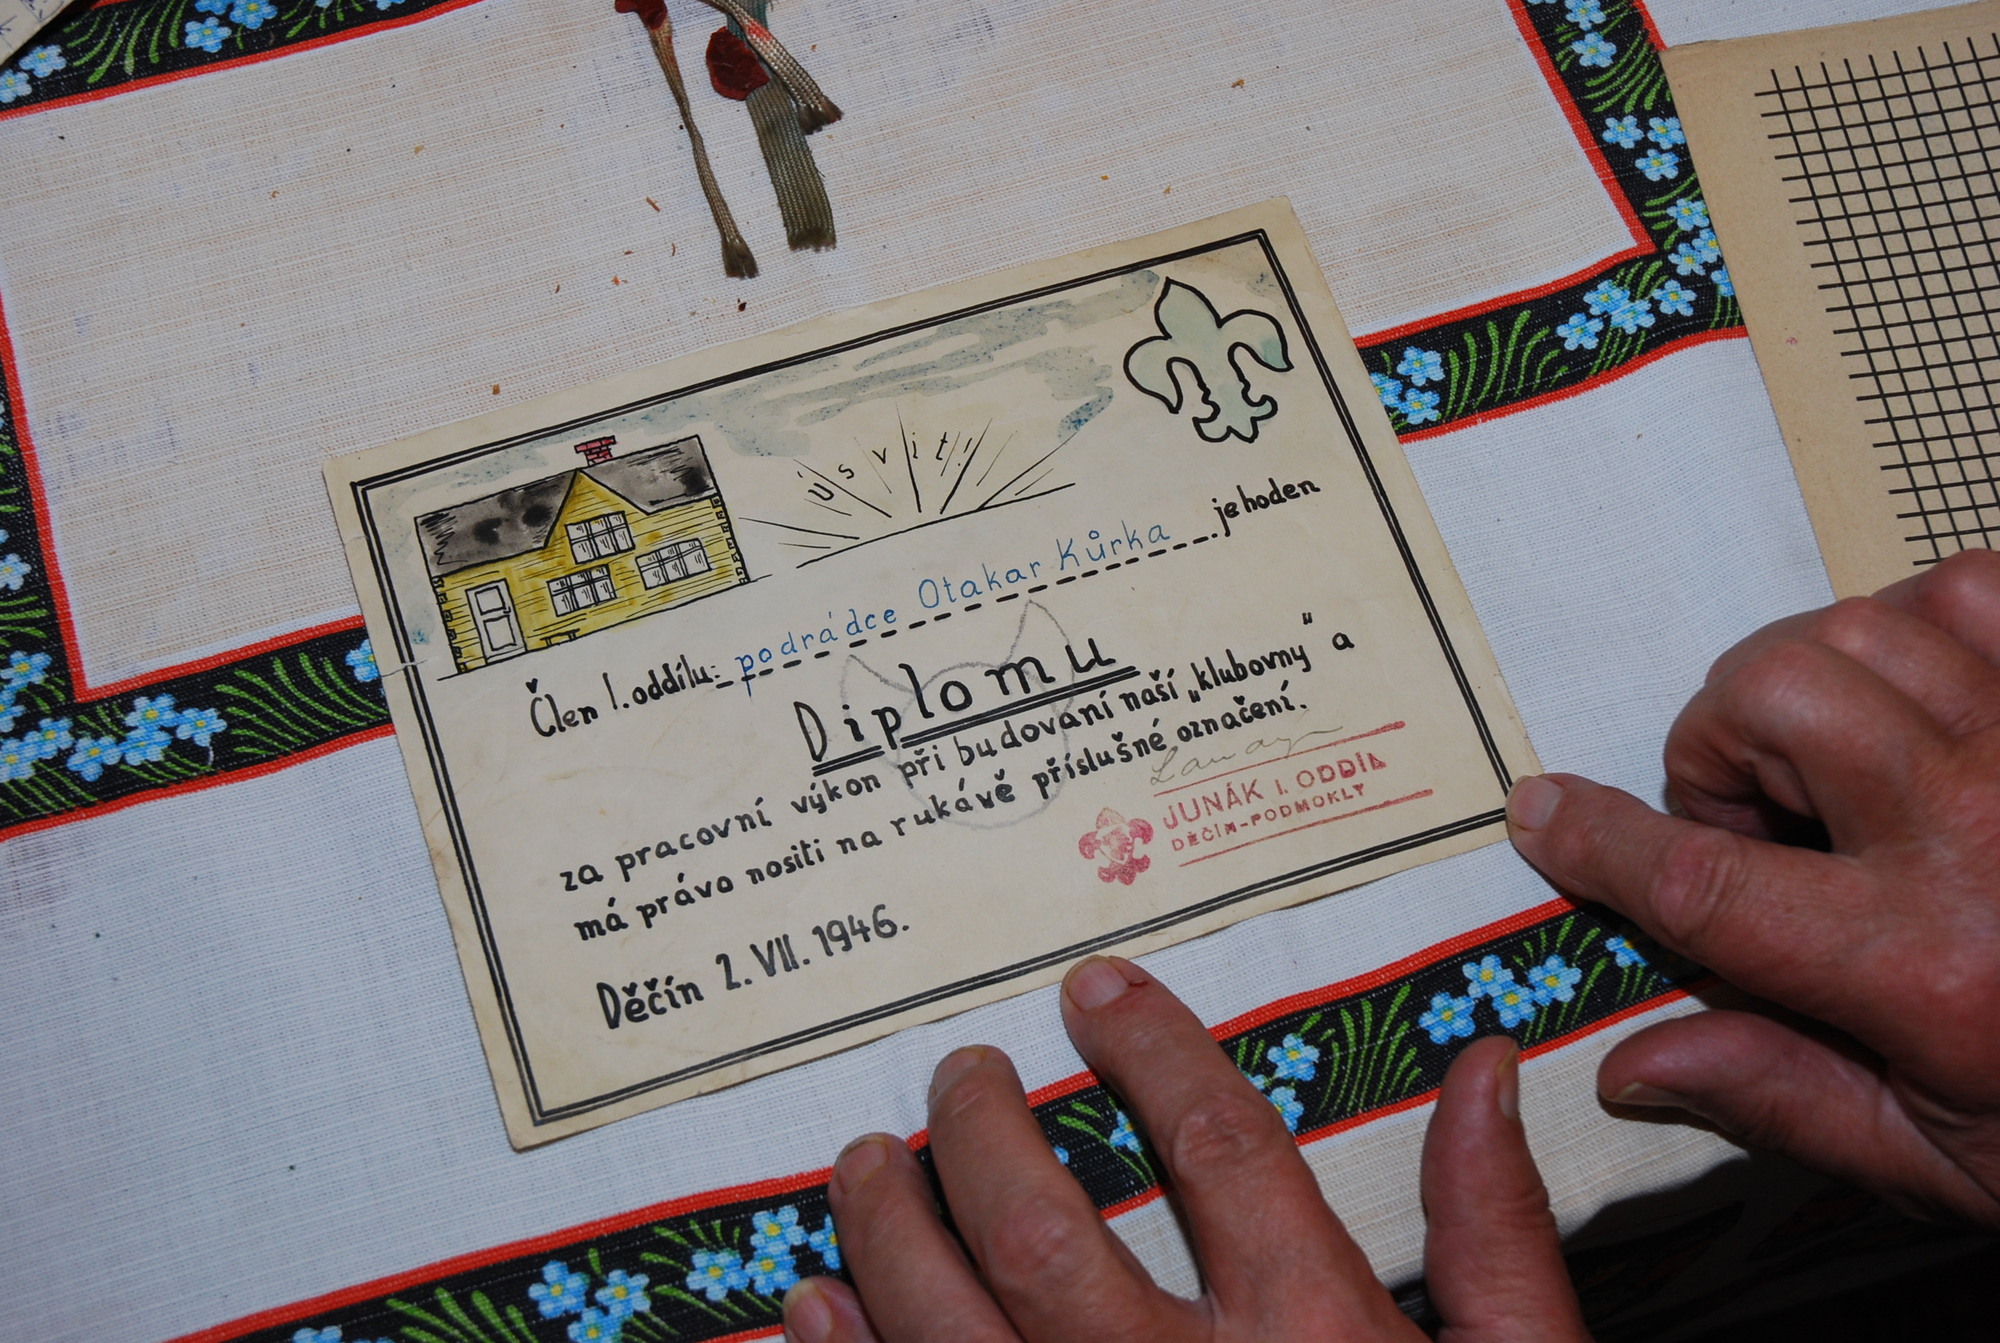 Úsvit!
Člen I. oddílu: podrádce Otakar Kůrka je hoden
Diplomu
za pracovní výkon při budovaní naší „klubovny" a
má právo nositi na rukávě příslušné označení.
JUNÁK I. ODDÍL
DĚČÍN-PODMOKLY
Děčín 2. VII. 1946.